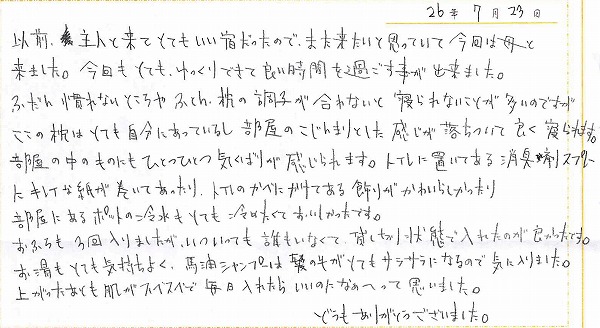 26年 7月 23日
以前、主人と来てとてもいい宿だったので、また来たいと思っていて今回は母と
来ました。今回もとても、ゆっくりできて良い時間を過ごす事が出来ました。
ふだん慣れないところやふとん、枕の調子が合わないと寝られないことが多いのですが
ここの枕はとても自分にあっているし部屋のこじんまりとした感じが落ちついて良く寝られます。
部屋の中のものにもひとつひとつ気くばりが感じられます。トイレに置いてある消臭剤スプレー
にキレイな紙が巻いてあったり、トイレのかべにかけてある飾りがかわいらしかったり
部屋にあるポットの冷水もとても冷めたくておいしかったです。
おふろも3回入りましたが、いついっても誰もいなくて、貸し切り状態で入れたのが良かったです。
お湯もとても気持ちよく、馬油シャンプーは髪の毛がとてもサラサラになるので気に入りました。
上がったあとも肌がスベスベで毎日入れたらいいのになぁ〜って思いました。
どうもありがとうございました。